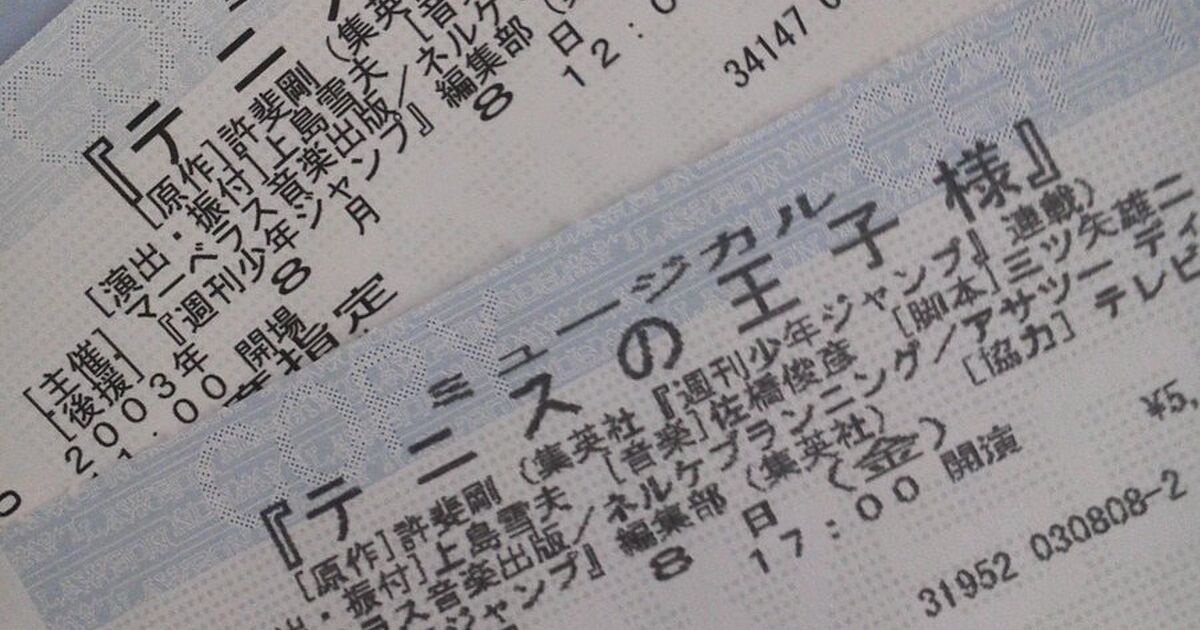 『テニ
[原作]許斐剛 (集英
[演出・振付]上島雪夫 [音
[主催] マーベラス音楽出版/ネルケ
[後援] 『週刊少年ジャンプ』編集部
2003年 8 月 8 日
00 開場 12:0
指定
34147
ミュージカル
『テニスの王子様』
[原作]許斐剛 (集英社『週刊少年ジャンプ』連載)
出・振付]上島雪夫 [音楽]佐橋俊彦 [脚本]三ツ矢雄二
ラス音楽出版/ネルケプランニング/アサツー ディ
ジャンプ』編集部 (集英社) [協力] テレビ
8 日 (金)
17:00 開演
¥5,
31952 030808-2
COPY
COPY
COPY